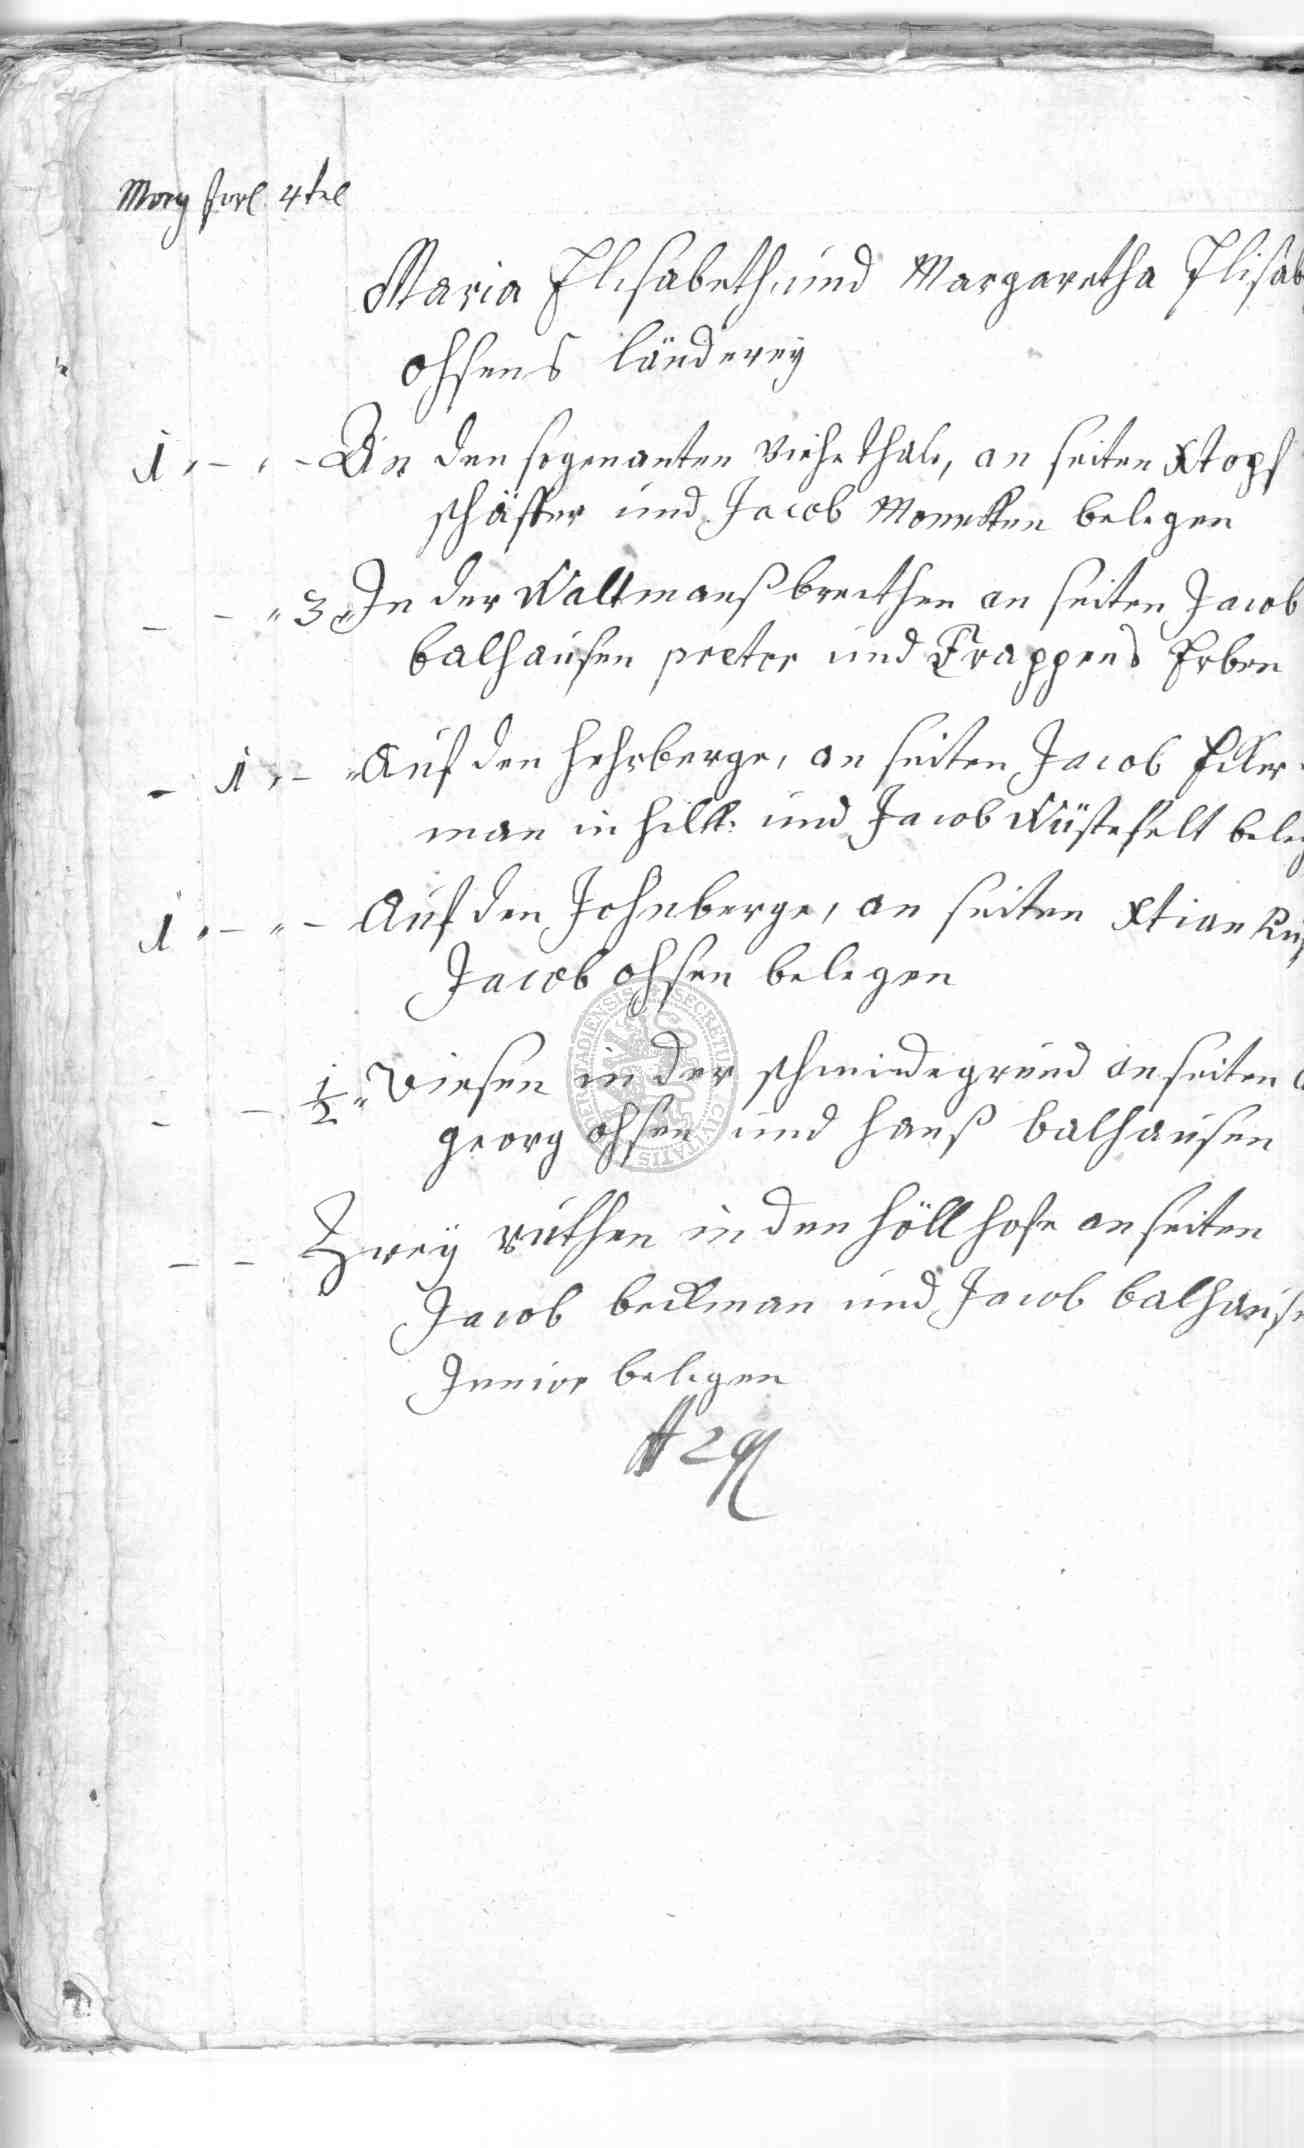 Morg forl 4tel
Maria Elisabeth und Margaretha Elisab
ohsens länderey
1 - - An den sogenanten Viehethale, an seiten Xtopf
schäffer und Jacob Monecken belegen
- - 3 In der Waltmanßbreithen an seiten Jacob
balhausen praetor und Trappens Erben
- 1 - Auf den hehrberge, an seiten Jacob Ecker
man in hilk. und Jacob Wüstefelt beleg
1 - - Auf den Johnberge, an seiten Xtian
Jacob ohsen belegen
- - 1/2 Wiesen in der schmiedegrund an seiten
georg ohsen und hanß balhausen
- - Zwey ruthen in den höllhofe an seiten
Jacob beckman und Jacob balhause
Junior belegen
SECRETUM CIVITATIS DUDERSTADIENSIS